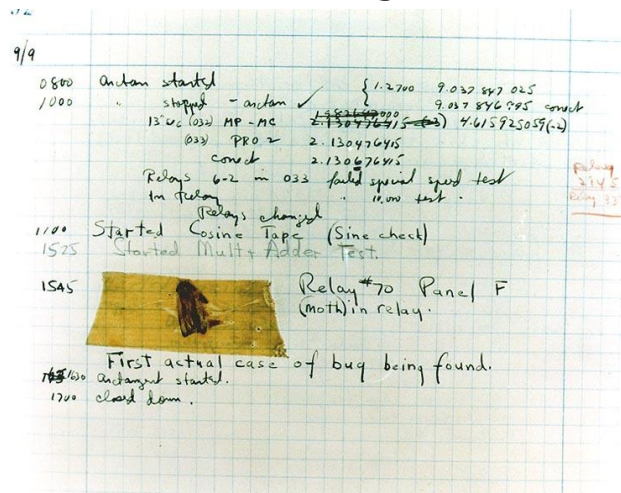 9/9
0800 arctan started { 1.2700 9.037 847 025
1000 " stopped - arctan ✓ 9.037 846 995 correct
13"uc (032) MP - MC 2.130476415 (-3) 4.615925059(-2)
(033) PRO 2 2.130476415
correct 2.130676415
Relays 6-2 in 033 failed special speed test
In Relay " 10.000 test .
Relays changed
1100 Started Cosine Tape (Sine check)
1525 Started Mult + Adder Test.
1545 Relay #70 Panel F
(moth) in relay.
First actual case of bug being found.
1630 arctangent started.
1700 closed down .
Relay
2145
Relay 337